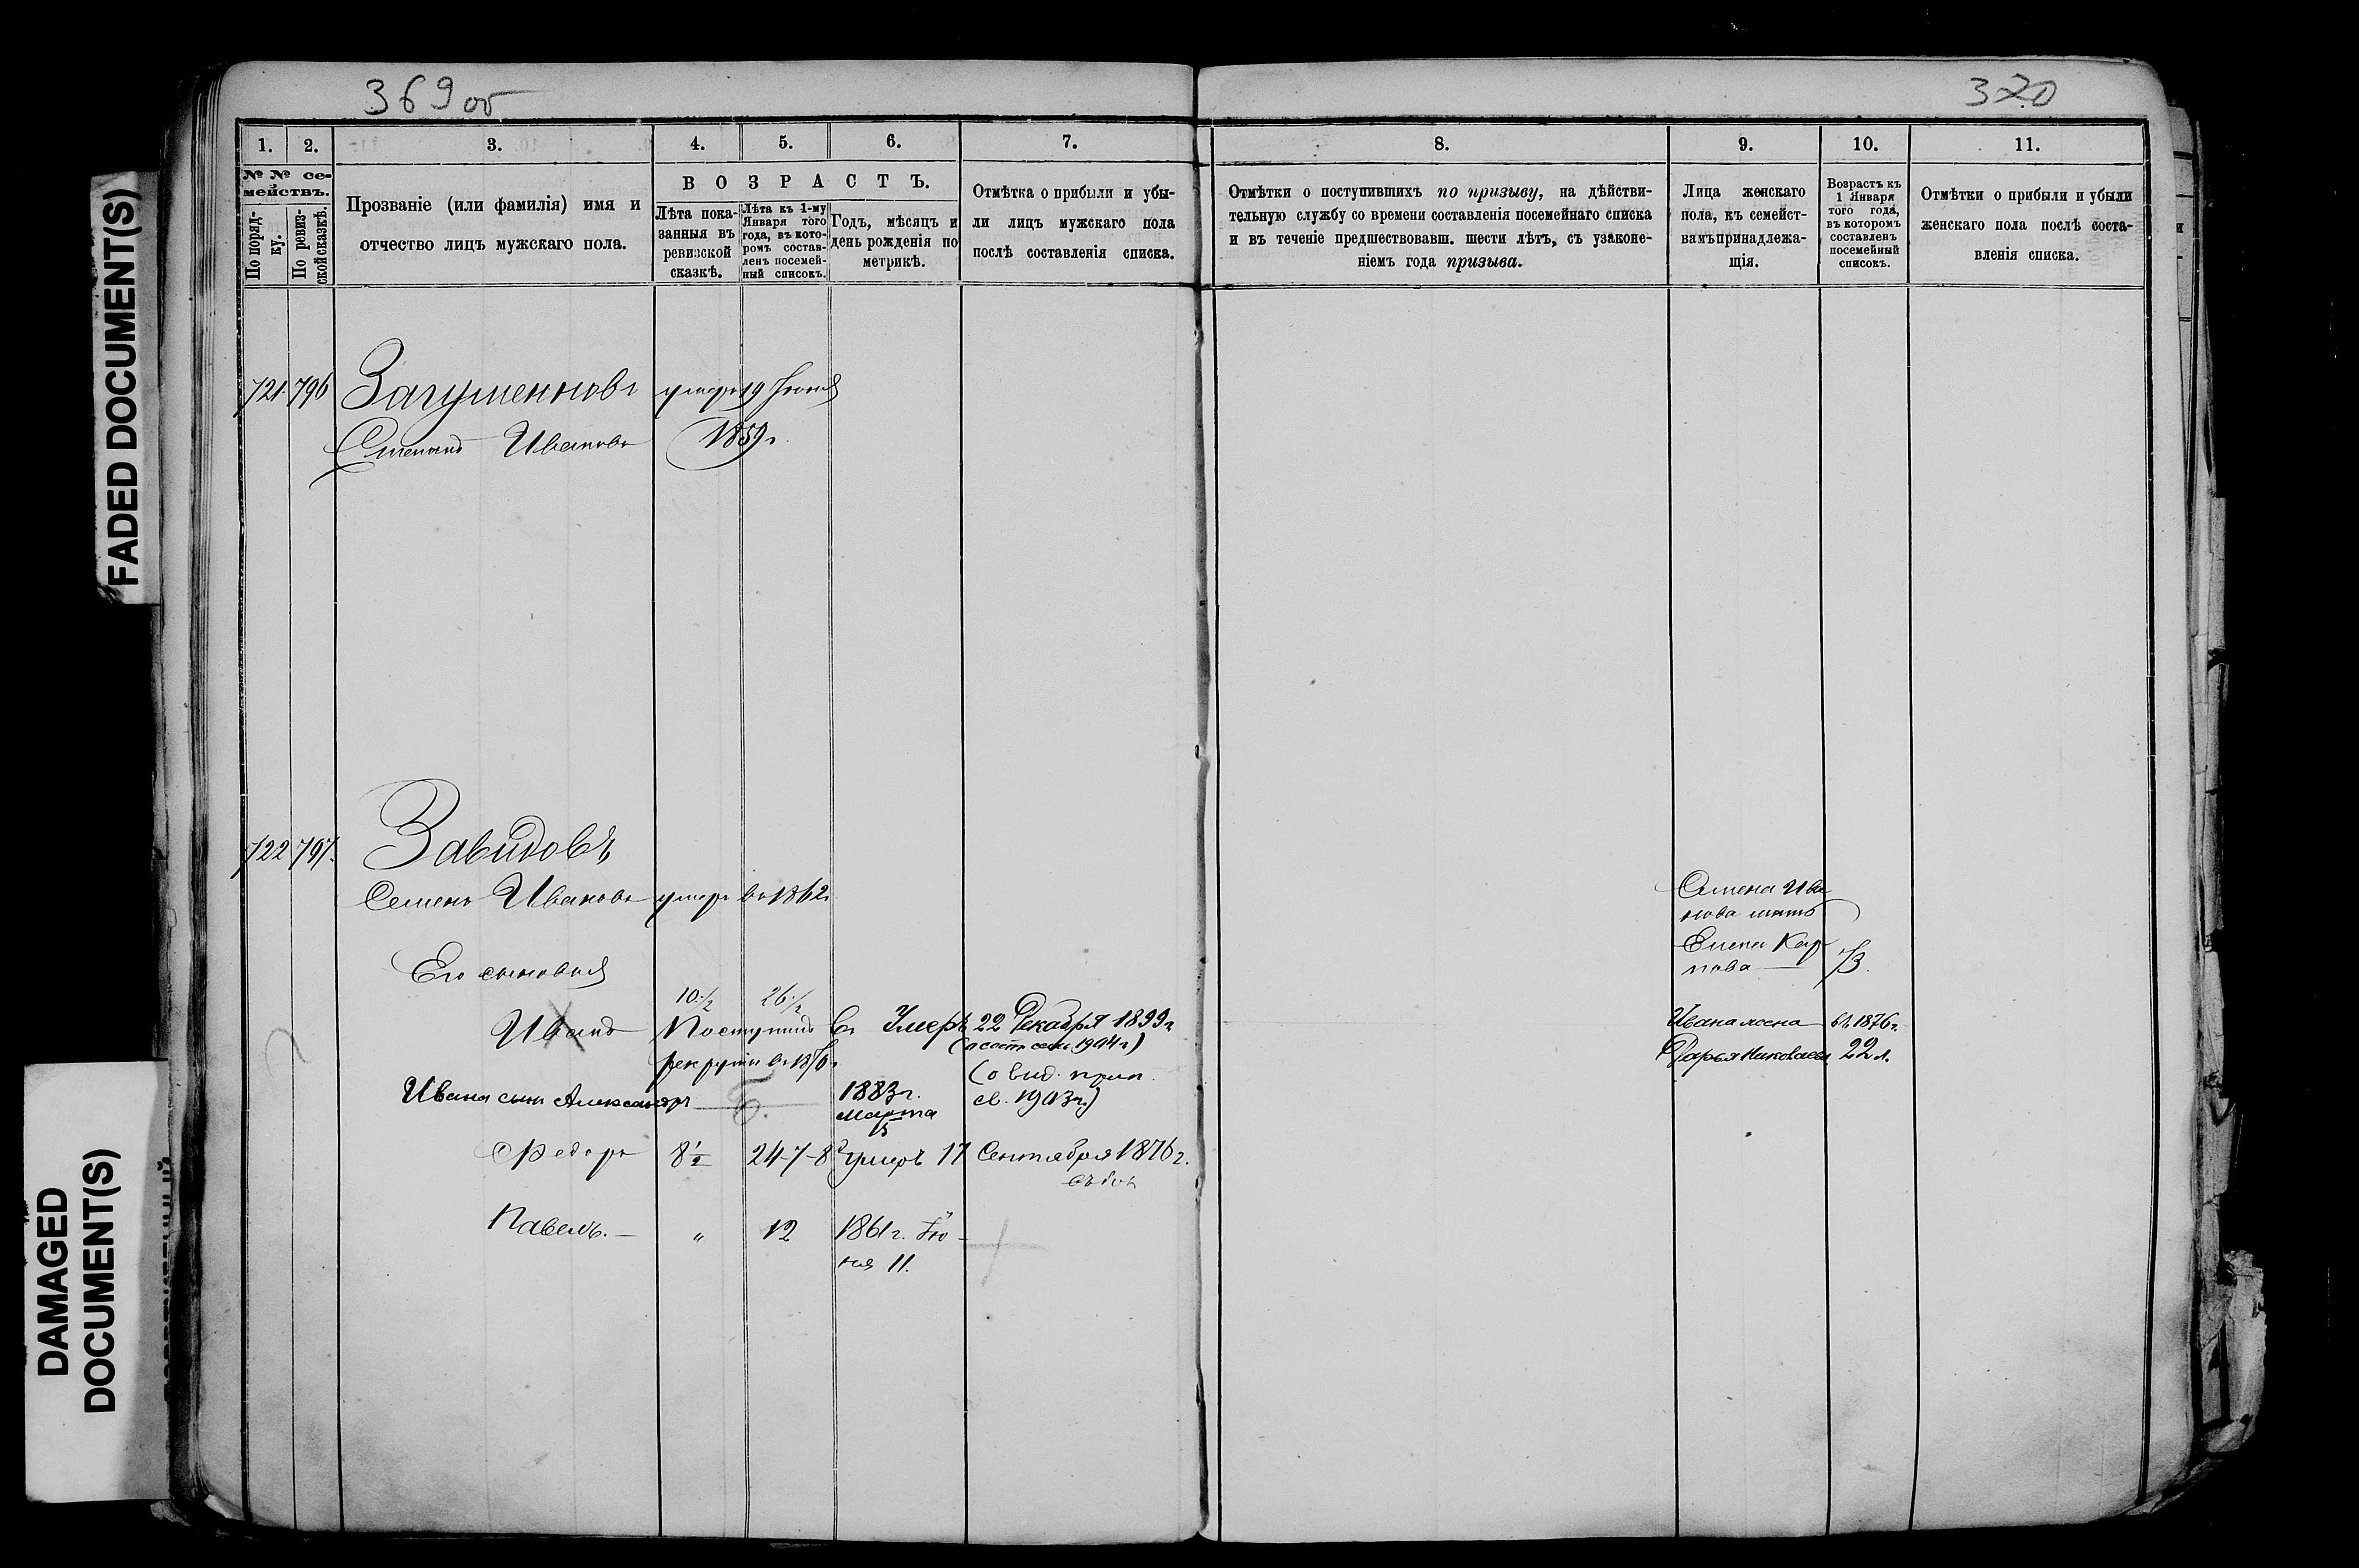 369 об
370
FADED DOCUMENT(S)
DAMAGED
DOCUMENT(S)
1. 2. 3. 4. 5. 6. 7. 8. 9. 10. 11.
№ № се-
мействъ.
По поряд-
ку.
По ревиз-
ской сказкѣ.
Прозваніе (или фамилія) имя и
отчество лицъ мужскаго пола.
ВОЗРАСТЪ.
Лѣта пока-
занныя въ
ревизской
сказкѣ.
Лѣта къ 1-му
Января того
года, въ кото-
ромъ состав-
ленъ посемей-
ный списокъ.
Годъ, мѣсяцъ и
день рожденія по
метрикѣ.
Отмѣтка о прибыли и убы-
ли лицъ мужскаго пола
послѣ составленія списка.
Отмѣтки о поступившихъ по призыву, на дѣйстви-
тельную службу со времени составленія посемейнаго списка
и въ теченіе предшествовавш. шести лѣтъ, съ узаконе-
ніемъ года призыва.
Лица женскаго
пола, къ семейст-
вамъ принадлежа-
щія.
Возрастъ къ
1 Января
того года,
въ которомъ
составленъ
посемейный
списокъ.
Отмѣтки о прибыли и убыли
женскаго пола послѣ соста-
вленія списка.
721. 796 Загуменновъ умеръ 19 Іюня
Степанъ Ивановъ 1859 г.
722 797. Завидовъ
Семенъ Ивановъ умеръ въ 1862
Семена Ива
нова мать
Елена Кар
пова — 73.
Его сыновья
10 1/2 26 1/2
Иванъ Поступилъ въ Умеръ 22 Декабря 1899 г
рекруты въ 18
Ивана жена въ 1876 г.
Дарья Николаева 22 л.
Ивана сынъ Александръ 1883 г.
марта
15
(о выд. 
св. 1903 г.)
Федоръ 8 1/2 24-7-8 Умеръ 17 Сентября 1876 г.
Павелъ. — " 12 1861 г. Ію-
ня 11.